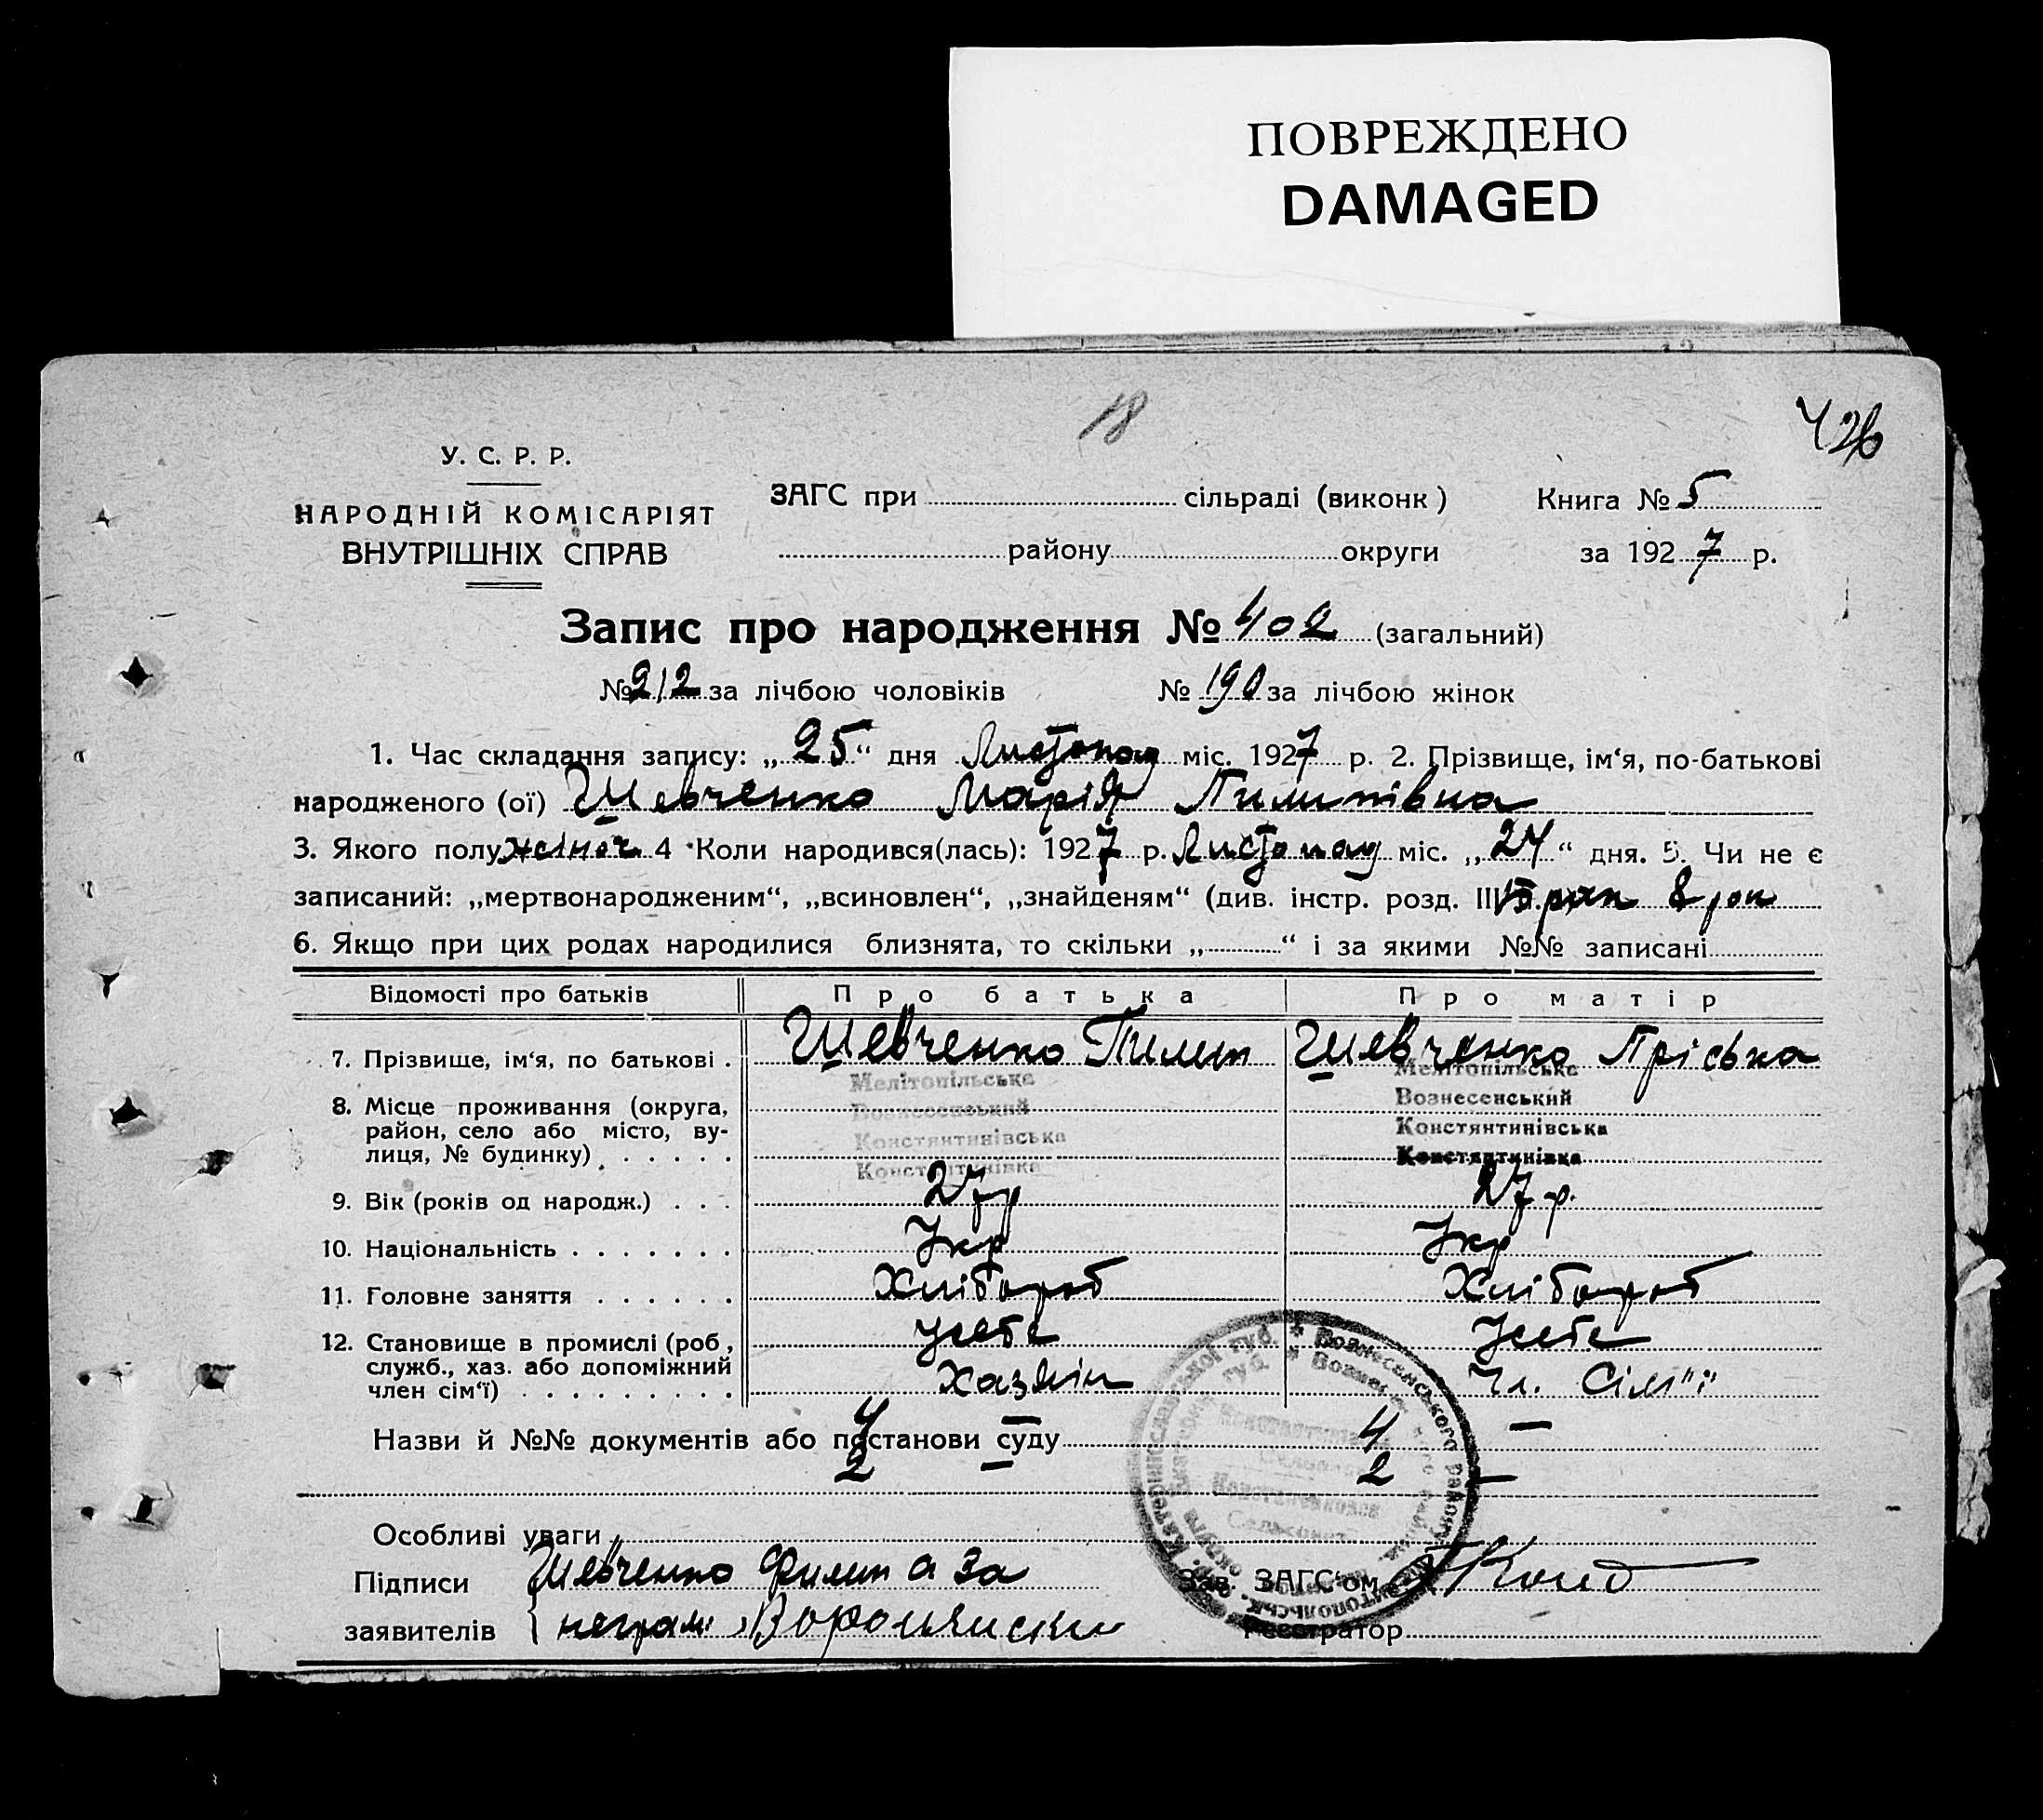 ПОВРЕЖДЕНО
DAMAGED
18
426
У. С. Р. Р.
НАРОДНІЙ КОМІСАРІЯТ
ВНУТРІШНІХ СПРАВ
ЗАГС при сільраді (виконк)
району округи
Книга № 5
за 1927 р.
Запис про народження № 402 (загальний)
№ 212 за лічбою чоловіків № 190 за лічбою жінок
1. Час складання запису: „25“ дня Листопад міс. 1927 р. 2. Прізвище, ім‘я, по-батькові
народженого (ої) Шевченко Марія Пилипівна
3. Якого полу жіноч 4 Коли народився(лась): 1927 р. Листопад міс. „24“ дня. 5. Чи не є
записаний: „мертвонародженим“, „всиновлен“, „знайденям“ (див. інстр. розд. III
6. Якщо при цих родах народилися близнята, то скільки „ “ і за якими №№ записані
Відомості про батьків Про батька Про матір
7. Прізвище, ім‘я, по батькові . Шевченко Пилип Шевченко Пріська
8. Місце проживання (округа,
район, село або місто, ву-
лиця, № будинку) . . . . . .
Мелітопільська
Вознесенський
Констянтинівська
Констянтинівка
Мелітопільська
Вознесенський
Констянтинівська
Констянтинівка
9. Вік (років од народж.) . . . 27 р 27 р.
10. Національність . . . . . . . Укр Укр
11. Головне заняття . . . . . . Хлібороб Хлібороб
12. Становище в промислі (роб,
служб., хаз. або допоміжний
член сім‘ї) . . . . . . . . .
Хазяін Чл. Сім"ї
Назви й №№ документів або постанови суду
4 4
2 2
Особливі уваги
Підписи Шевченко Филип а за
заявителів неграм
Зав. ЗАГС‘ом
Реєстратор